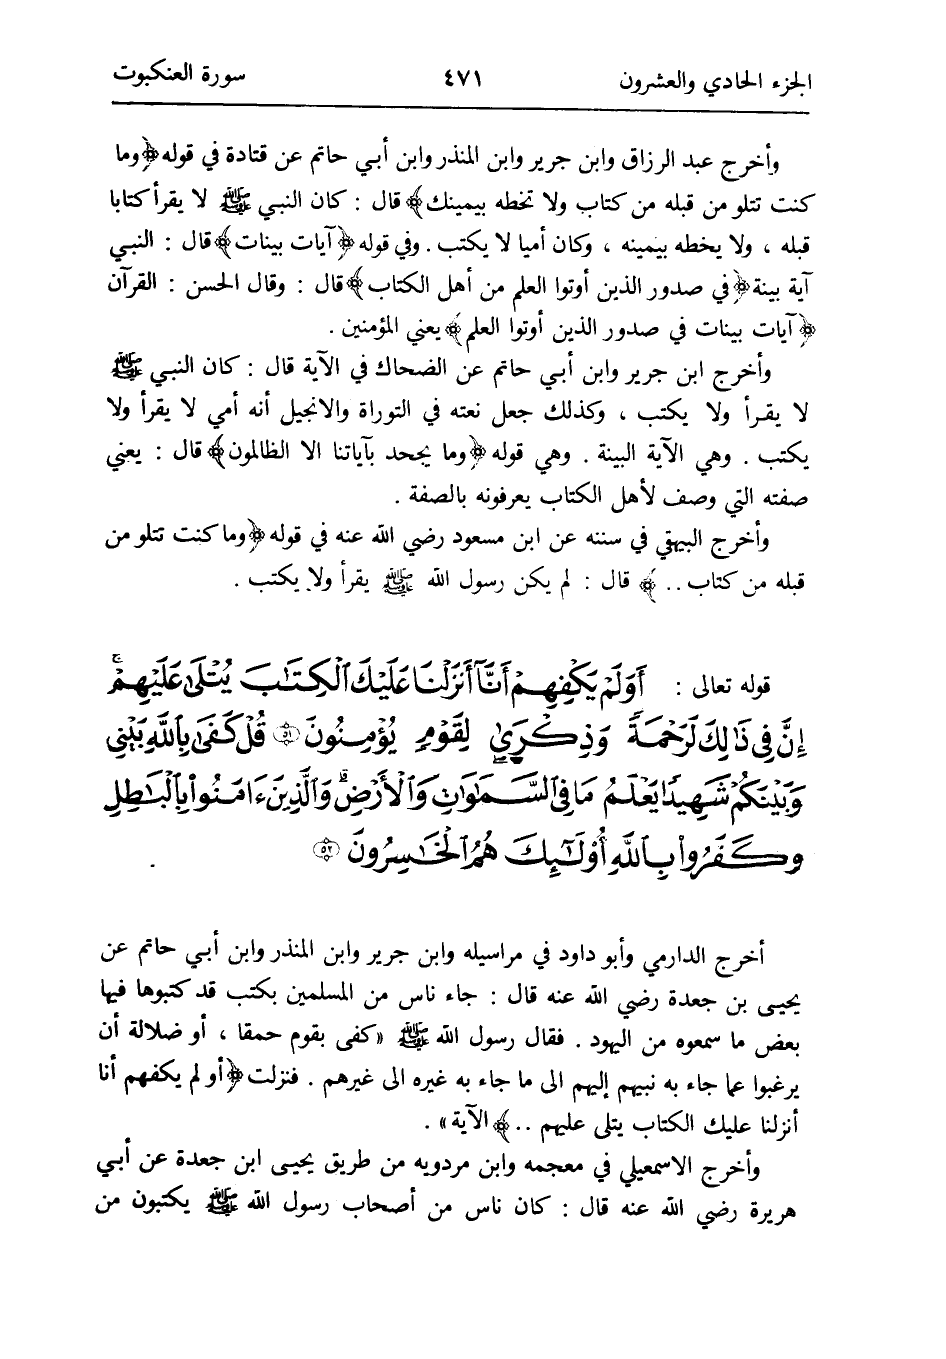 الجزء الحادي والعشرون ٤٧١ سورة العنكبوت
وأخرج عبد الرزاق وابن جرير وابن المنذر وابن أبـي حاتم عن قتادة في قوله ﴿وما
كنت تتلو من قبله من كتاب ولا تخطه بيمينك﴾ قال : كان النبـي ﷺ لا يقرأ كتابا
قبله ، ولا يخطه بيمينه ، وكان أميا لا يكتب . وفي قوله ﴿آيات بينات﴾ قال : النبـي
آية بينة ﴿في صدور الذين أوتوا العلم من أهل الكتاب﴾ قال : وقال الحسن : القرآن
﴿آيات بينات في صدور الذين أوتوا العلم﴾ يعني المؤمنين .
وأخرج ابن جرير وابن أبـي حاتم عن الضحاك في الآية قال : كان النبـي ﷺ
لا يقـرأ ولا يكتب ، وكذلك جعل نعته في التوراة والانجيل أنه أمي لا يقرأ ولا
يكتب . وهي الآية البينة . وهي قوله ﴿وما يجحد بآياتنا الا الظالمون﴾ قال : يعني
صفته التي وصف لأهل الكتاب يعرفونه بالصفة .
وأخرج البيهقي في سننه عن ابن مسعود رضي الله عنه في قوله ﴿وما كنت تتلو من
قبله من كتاب .. ﴾ قال : لم يكن رسول الله ﷺ يقرأ ولا يكتب .
قوله تعالى : أَوَلَمْ يَكْفِهِمْ أَنَّآ أَنزَلْنَا عَلَيْكَ ٱلْكِتَٰبَ يُتْلَىٰ عَلَيْهِمْ ۚ
إِنَّ فِي ذَٰلِكَ لَرَحْمَةً وَذِكْرَىٰ لِقَوْمٍ يُؤْمِنُونَ ٥١ قُلْ كَفَىٰ بِٱللَّهِ بَيْنِي
وَبَيْنَكُمْ شَهِيدًا يَعْلَمُ مَا فِي ٱلسَّمَٰوَٰتِ وَٱلْأَرْضِ ۗ وَٱلَّذِينَ ءَامَنُوا۟ بِٱلْبَٰطِلِ
وَكَفَرُوا۟ بِٱللَّهِ أُو۟لَٰٓئِكَ هُمُ ٱلْخَٰسِرُونَ ٥٢
أخرج الدارمي وأبو داود في مراسيله وابن جرير وابن المنذر وابن أبـي حاتم عن
يحيـى بن جعدة رضي الله عنه قال : جاء ناس من المسلمين بكتب قد كتبوها فيها
بعض ما سمعوه من اليهود . فقال رسول الله ﷺ «كفى بقوم حمقا ، أو ضلالة أن
يرغبوا عما جاء به نبيهم إليهم الى ما جاء به غيره الى غيرهم . فنزلت ﴿أو لم يكفهم أنا
أنزلنا عليك الكتاب يتلى عليهم .. ﴾ الآية» .
وأخرج الاسمعيلي في معجمه وابن مردويه من طريق يحيـى ابن جعدة عن أبـي
هريرة رضي الله عنه قال : كان ناس من أصحاب رسول الله ﷺ يكتبون من